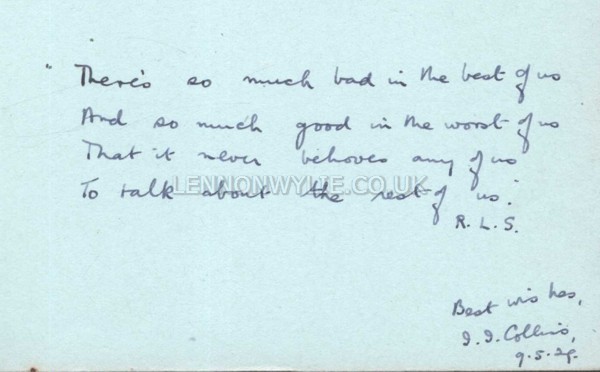 "There's so much bad in the best of us
And so much good in the worst of us
That it never behoves any of us
To talk about the rest of us."
LENNONWYLIE.CO.UK
R. L. S.
Best wishes,
I. I. Collins,
9.5.29.